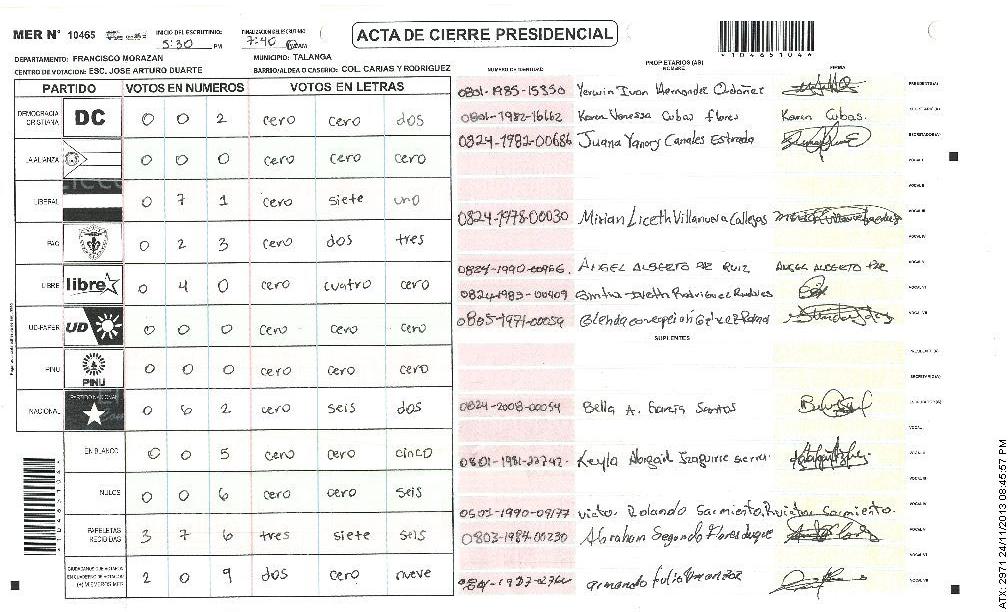 MER N° 10465 INICIO DEL ESCRUTINIO: 5:30 PM FINALIZACION DEL ESCRUTINIO 7:40
ACTA DE CIERRE PRESIDENCIAL
*10465104*
DEPARTAMENTO: FRANCISCO MORAZAN MUNICIPIO: TALANGA
CENTRO DE VOTACION: ESC. JOSE ARTURO DUARTE BARRIO/ALDEA O CASERIO: COL. CARIAS Y RODRIGUEZ
PARTIDO VOTOS EN NUMEROS VOTOS EN LETRAS
DEMOCRACIA CRISTIANA DC 0 0 2 cero cero dos
LA ALIANZA 0 0 0 cero cero cero
LIBERAL 0 7 1 cero siete uno
PAC 0 2 3 cero dos tres
LIBRE libre 0 4 0 cero cuatro cero
UD-FAPER UD 0 0 0 cero cero cero
PINU PINU 0 0 0 cero cero cero
NACIONAL PARTIDO NACIONAL 0 6 2 cero seis dos
EN BLANCO 0 0 5 cero cero cinco
NULOS 0 0 6 cero cero seis
PAPELETAS RECIBIDAS 3 7 6 tres siete seis
CIUDADANOS QUE VOTARON EN CUADERNO DE VOTACION (+) MIEMBROS MER 2 0 9 dos cero nueve
PROPIETARIOS (AS)
NUMERO DE IDENTIDAD NOMBRE FIRMA
0801-1985-15350 Yerwin Ivan Hernandez Ordoñez PRESIDENTE(A)
0801-1982-16162 Karen Vanessa Cubas flores Karen Cubas. SECRETARIO(A)
0824-1982-00686 Juana Yanory Canales Estrada ESCRUTADOR(A)
VOCAL I
VOCAL II
0824-1978-00030 Mirian Liceth Villanueva Callejas VOCAL III
VOCAL IV
0824-1990-00966. ANGEL ALBERTO PAZ RUIZ ANGEL ALBERTO PAZ VOCAL V
0824-1983-00409 VOCAL VI
0805-1971-00059 VOCAL VII
SUPLENTES
PRESIDENTE(A)
SECRETARIO(A)
0824-2008-00054 Bella A. Garcia Santos ESCRUTADOR(A)
VOCAL I
0801-1981-22742. Keyla Abigail Izaguirre sierra. VOCAL II
VOCAL III
0501-1990-09177 Victor Rolando Sarmiento. VOCAL IV
0803-1984-00230 Abraham Segundo Flores duque VOCAL V
VOCAL VI
armando fulio VOCAL VII
ATX: 2971 24/11/2013 08:45:57 PM